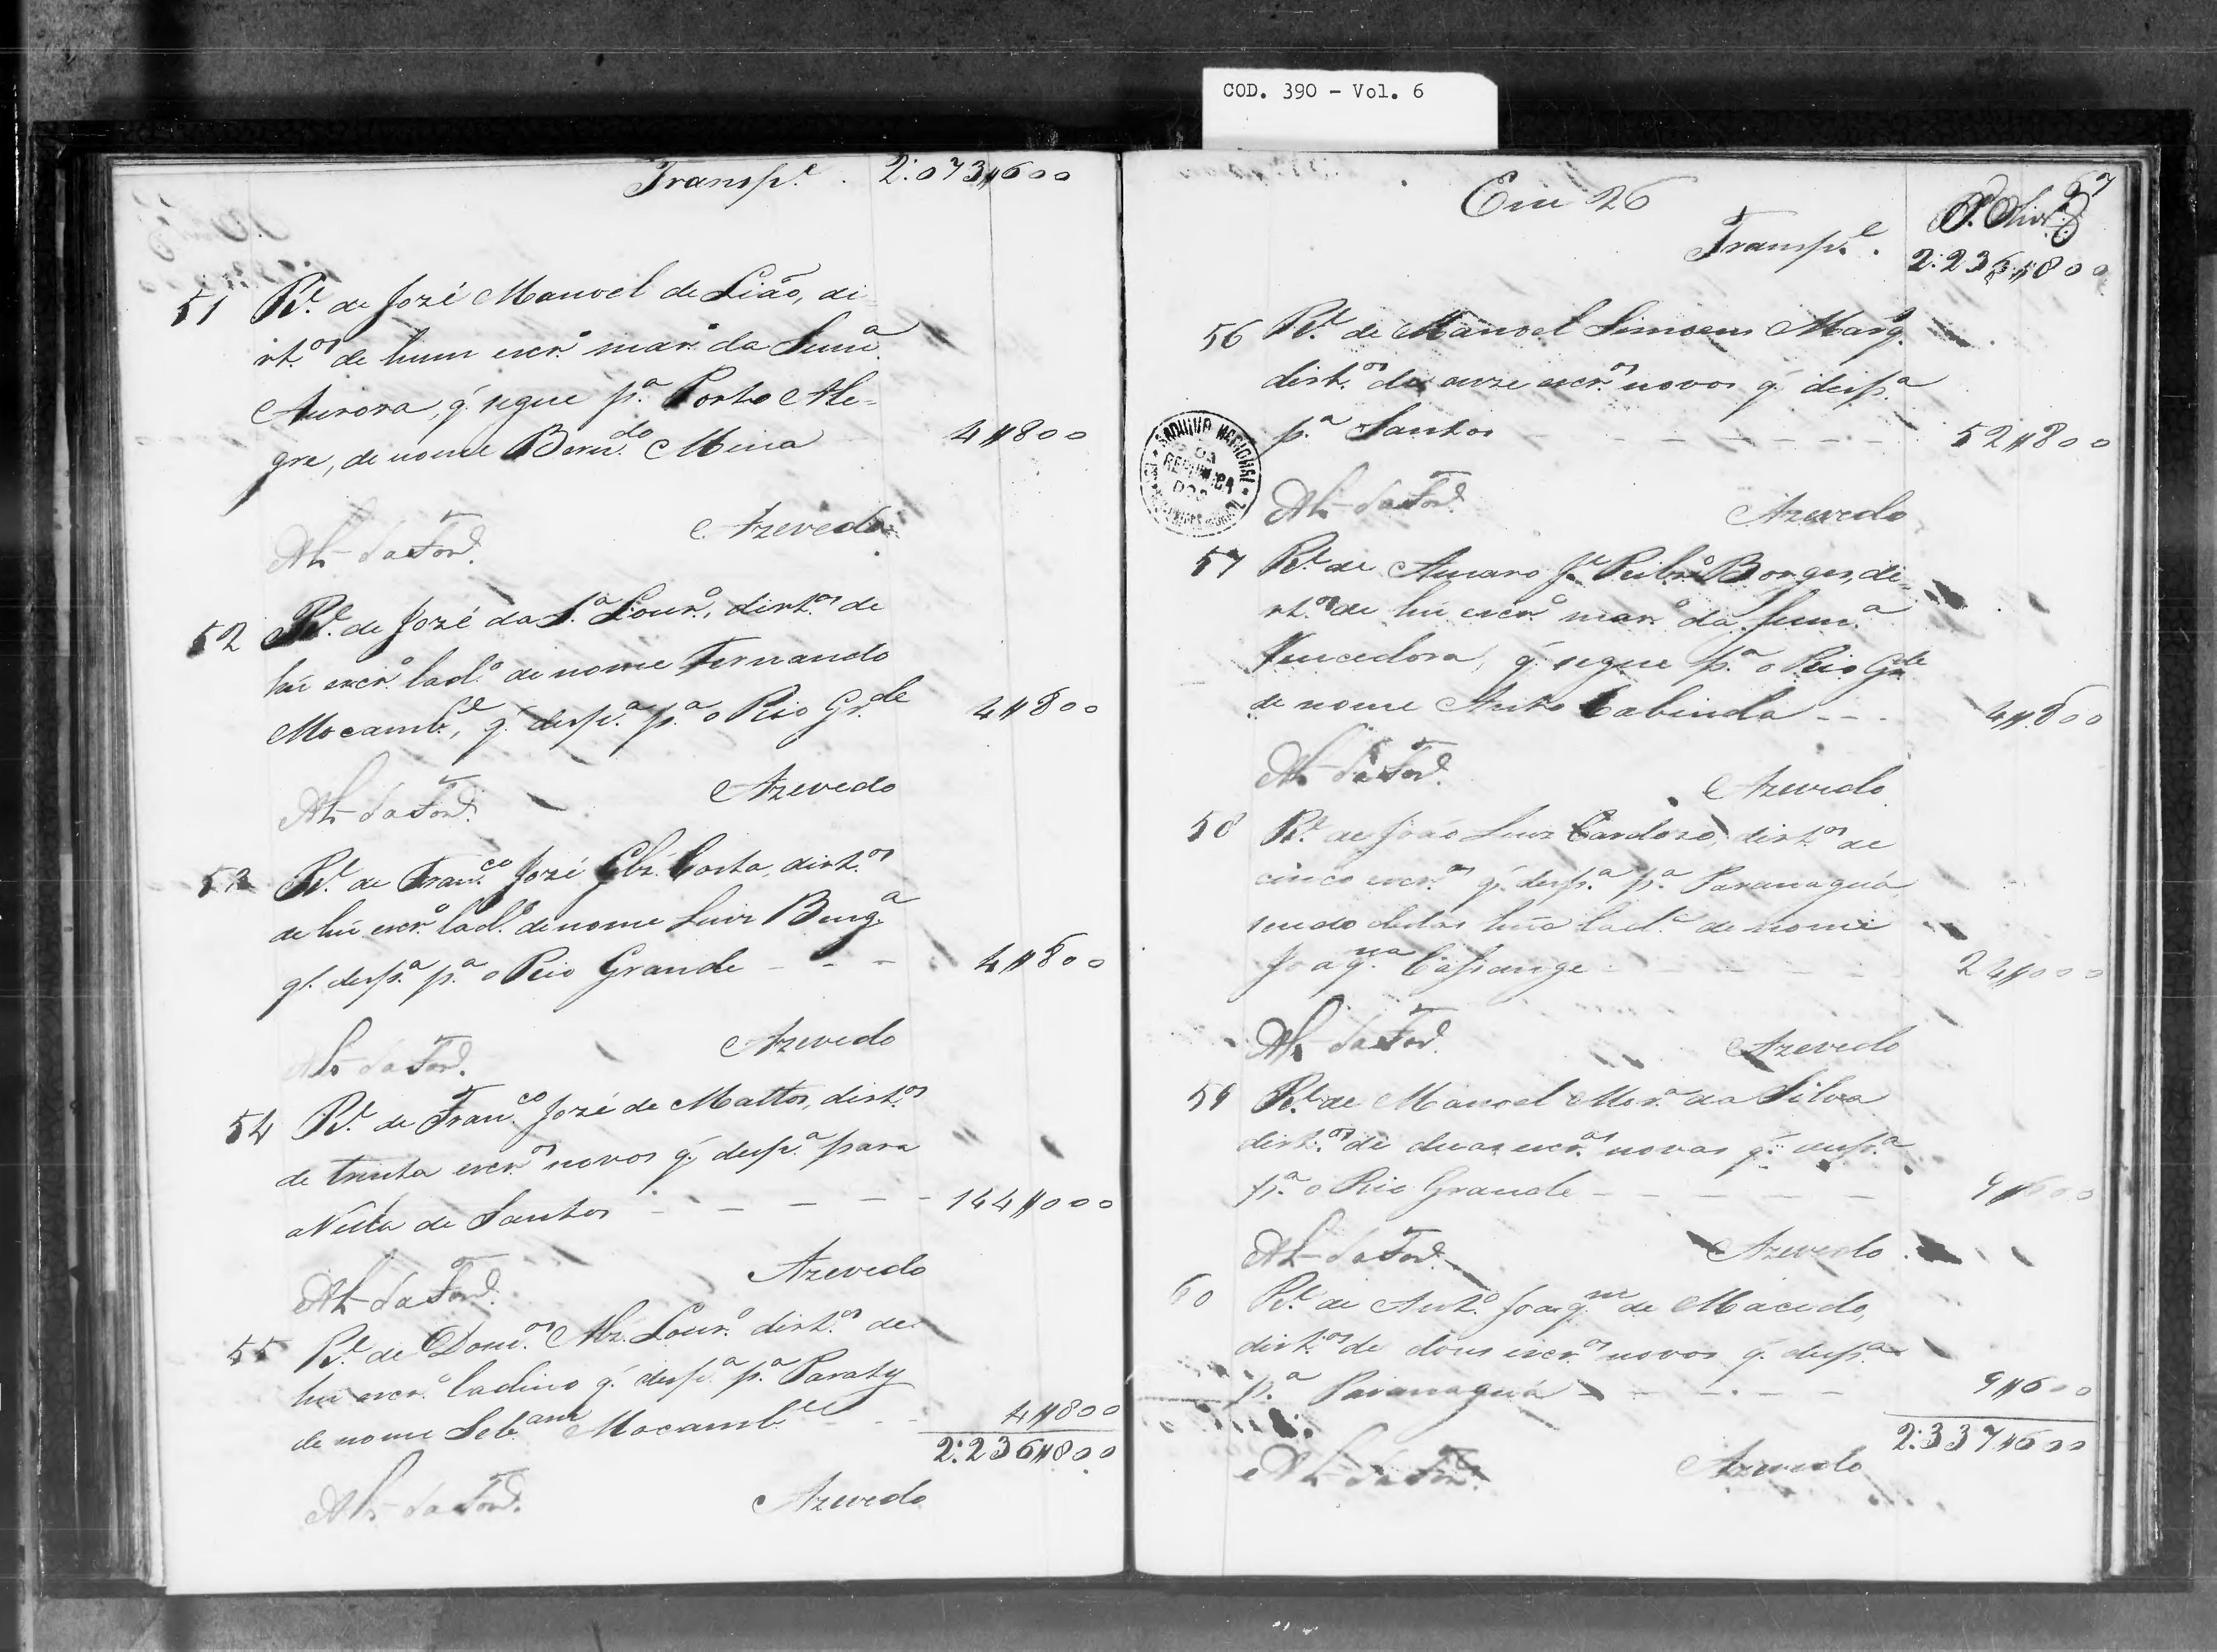 COD. 390 - Vol. 6
Transp.e . 2:073#600
51 R.e de José Manoel de Lião, di-
rt.os de hum escr.o mar.o da Sum.a
Aurora, q' segue p.a Porto Ale-
gre, de nome Bern.do Mina 4#800
Azevedo
52 R.e de José da S.a Lour.o, dirt.os de
hũ escr.o lad.o de nome Fernando
Mocamb.e, q' desp.a p.a o Rio Gr.de 4#800
Azevedo
53 R.e de Fran.co José Glz' Costa, dirt.os
de hũ escr.o lad.o de nome Luiz Beng.a
q' desp.a p.a o Rio Grande - - - 4#800
Azevedo
54 R.e de Fran.co José de Mattos, dirt.os
de trinta escr.os novos q' desp.a para
a Villa de Santos - - - - - 144#000
Azevedo
55 R.e de Dom.os Alz' Lour.o dirt.os de
hũ escr.o ladino q' desp.a p.a Paraty
de nome Seb.am Mocamb.e - - 4#800
2:236#800
Azevedo
67
Em 26
Transp.e . 2:236#800
56 R.e de Manoel Simoens Marq.
dirt.os de onze escr.os novos q' desp.a
p.a Santos - - - - - - - 52#800
ARQUIVO NACIONAL
Azevedo
57 R.e de Amaro J.e Ribr.o Borges, di-
rt.os de hũ escr.o mar.o da Sum.a
Vencedora, q' segue p.a o Rio Gr.de
de nome Anto Cabinda - - - 4#800
Azevedo
58 R.e de João Luiz Cardozo, dirt.os de
cinco escr.os q' desp.a p.a Paranaguá
sendo destas hũa lad.a de nome
Joaq.na Casange - - - - 24#000
Azevedo
59 R.e de Manoel Mor.a da Silva
dirt.os de duas escr.as novas q' desp.a
p.a o Rio Grande - - - - - 9#600
Azevedo
60 R.e de Ant.o Joaq.m de Macedo,
dirt.os de dous escr.os novos q' desp.a
p.a Paranaguá - - - - - 9#600
2:337#600
Azevedo